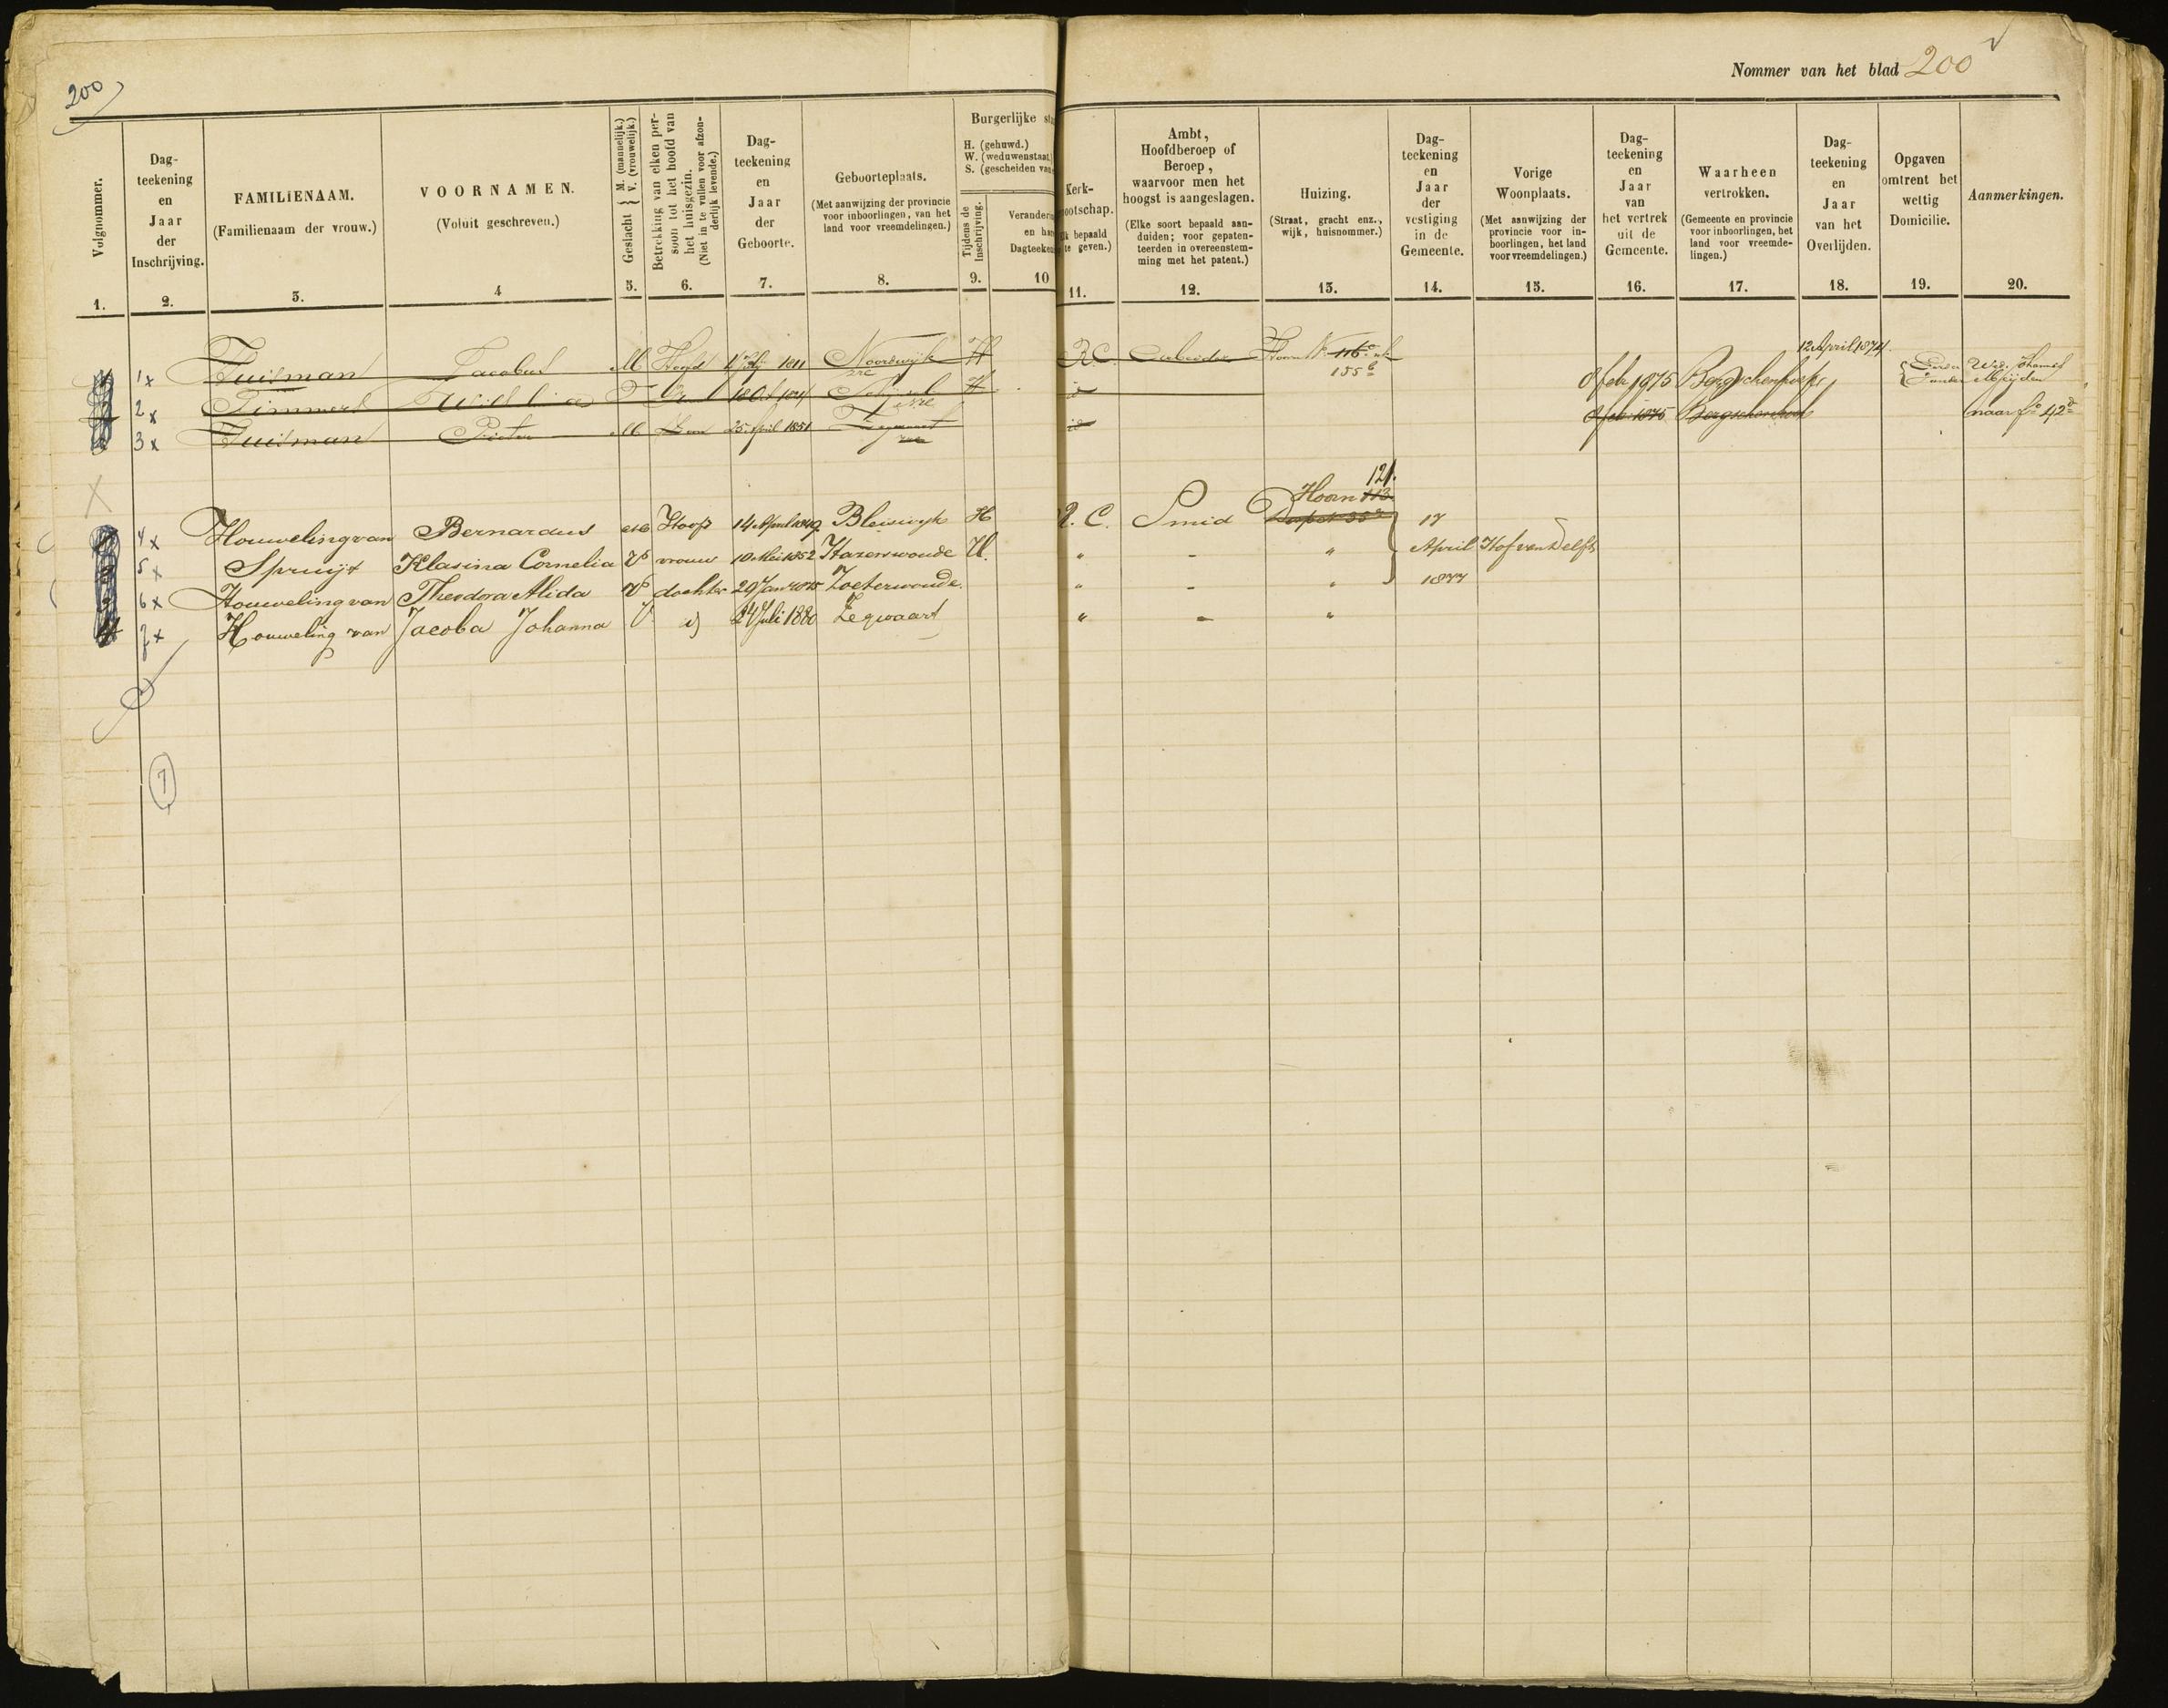 200
Nommer van het blad 200
Volgnommer.
1.
Dag-
teekening
en
Jaar
der
Inschrijving.
2.
FAMILIENAAM.
(Familienaam der vrouw.)
3.
VOORNAMEN.
(Voluit geschreven.)
4
Geslacht { M. (mannelijk.)
V. (vrouwelijk.)
5.
Betrekking van elken per-
soon tot het hoofd van
het huisgezin.
(Niet in te vullen voor afzon-
derlijk levende.)
6.
Dag-
teekening
en
Jaar
der
Geboorte.
7.
Geboorteplaats.
(Met aanwijzing der provincie
voor inboorlingen, van het
land voor vreemdelingen.)
8.
Burgerlijke sta
H. (gehuwd.)
W. (weduwenstaat)
S. (gescheiden van
Tijdens de
Inschrijving.
9.
Veranderin
en har
Dagteeken
10
Kerk-
ootschap.
k bepaald
te geven.)
11.
Ambt,
Hoofdberoep of
Beroep,
waarvoor men het
hoogst is aangeslagen.
(Elke soort bepaald aan-
duiden; voor gepaten-
teerden in overeenstem-
ming met het patent.)
12.
Huizing.
(Straat, gracht enz.,
wijk, huisnommer.)
13.
Dag-
teekening
en
Jaar
der
vestiging
in de
Gemeente.
14.
Vorige
Woonplaats.
(Met aanwijzing der
provincie voor in-
boorlingen, het land
voor vreemdelingen.)
15.
Dag-
teekening
en
Jaar
van
het vertrek
uit de
Gemeente.
16.
Waarheen
vertrokken.
(Gemeente en provincie
voor inboorlingen, het
land voor vreemde-
lingen.)
17.
Dag-
teekening
en
Jaar
van het
Overlijden.
18.
Opgaven
omtrent het
wettig
Domicilie.
19.
Aanmerkingen.
20.
1x Tuitman Jacobus M Hoofd 1811 Noordwijk H R.C. Arbeider Hoorn 116 12 April 1874
155 b
2x Timmers V 18 Oct H id 8 feb 1875 Bergschenhoek
3x Tuitman Pieter M Zoon 25 April 1851 Zegwaart id 8 feb 1875 Bergschenhoek naar fo 42
121.
Hoorn 113
4x Houweling van Bernardus M Hoofd 14 April 1849 Bleiswijk H R. C. Smid Dorpst 35 17
5x Spruijt Klasina Cornelia V vrouw 10 Mei 1852 Hazerswoude H. " - " April Hof van Delft
6x Houweling van Theodora Alida V dochter 29 Jan 1875 Zoeterwoude. " - " 1877
7x Houweling van Jacoba Johanna V. id 24 Juli 1880 Zegwaart " - "
7